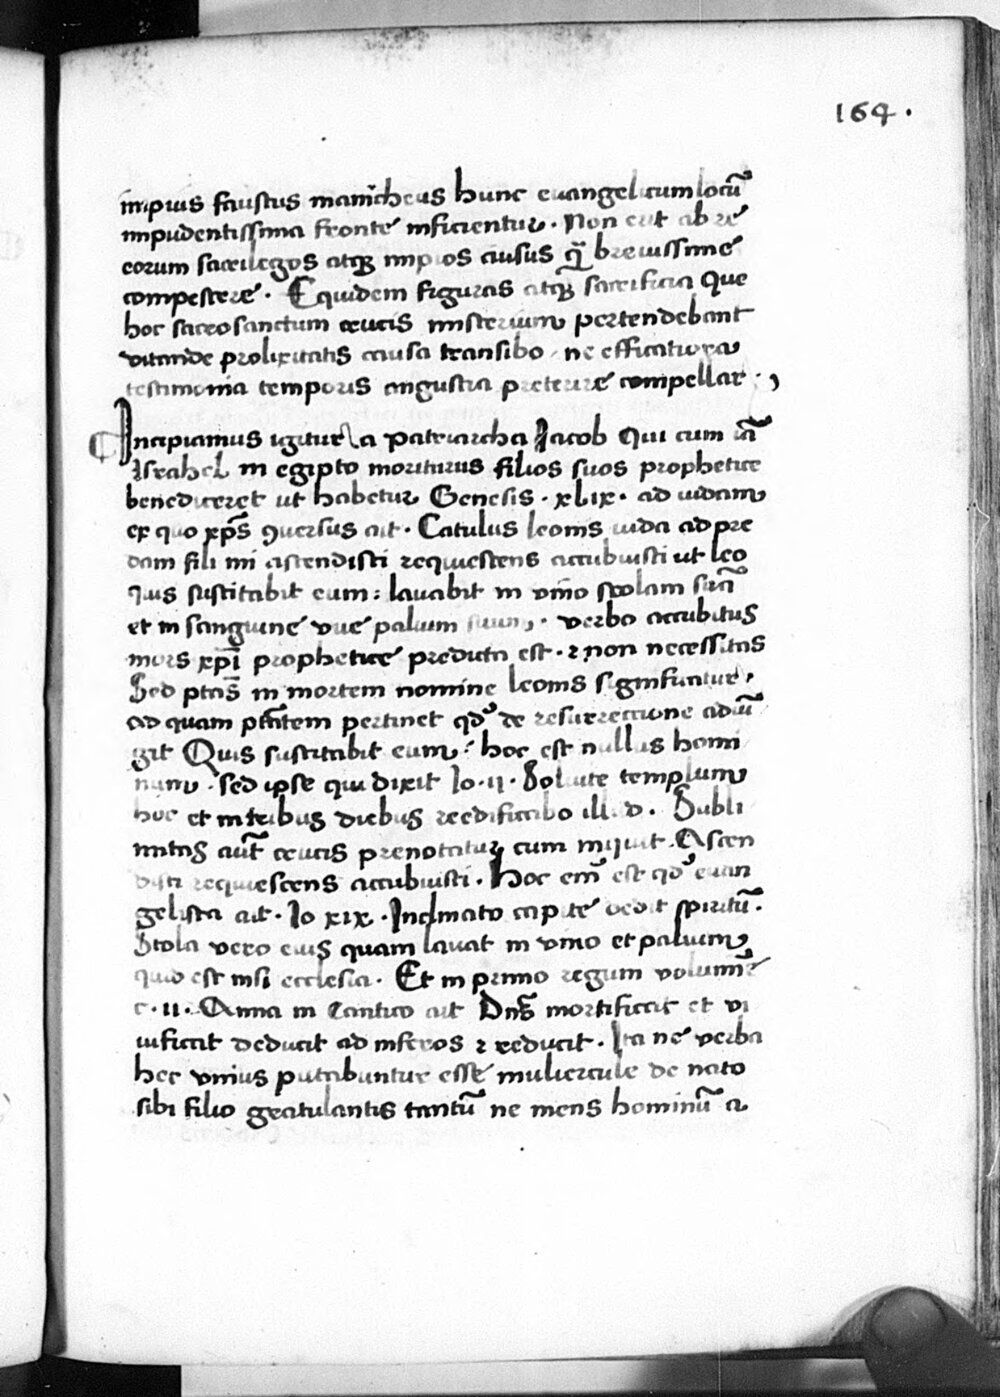 164.
impius faustus manicheus hunc euangelicum locū
impudentissima fronte inficientur. Non erit ab re
eorum sacrilegos atqꝫ impios ausus qͣ breuissime
compescere. Equidem figuras atqꝫ sacrificia que
hoc sacrosanctum crucis misterium pertendebant
vitande prolixitatis causa transibo, ne efficatiora
testimonia temporis angustia preterire compellar.
Incipiamus igitur a patriarcha Jacob Qui cum iā
Israhel in egipto moriturus filios suos prophetice
benediceret ut habetur Genesis. xlix. ad iudam
ex quo xp̄s ꝯuersus ait. Catulus leonis iuda ad pre
dam fili mi ascendisti requiescens accubuisti ut leo
quis suscitabit eum: lauabit in vino stolam suā
et in sanguine vue palium suum. verbo accubitus
mors xp̄i prophetice predicta est. ⁊ non necessitas
Sed ptās in mortem nomine leonis significatur,
ad quam ptātem pertinet qd' de resurrectione adiū
git Quis suscitabit eum? hoc est nullus homi
num. sed ipse qui dixit Io. ii. Soluite templum
hoc et in tribus diebus reedificabo illud. Subli
mitas aūt crucis prenotatur cum inquit. Ascen
disti requiescens accubuisti. Hoc em̄ est qd' euan
gelista ait. Io xix. Inclinato capite dedit spiritū.
Stola vero eius quam lauat in vino et palium
quid est nisi ecclesia. Et in primo regum volumīe
c. ii. Anna in Cantico ait Dn̄s mortificat et vi
uificat deducit ad inferos ⁊ reducit. Ita ne verba
hec vnius putabuntur esse muliercule de nato
sibi filio gratulantis tantū ne mens hominū a